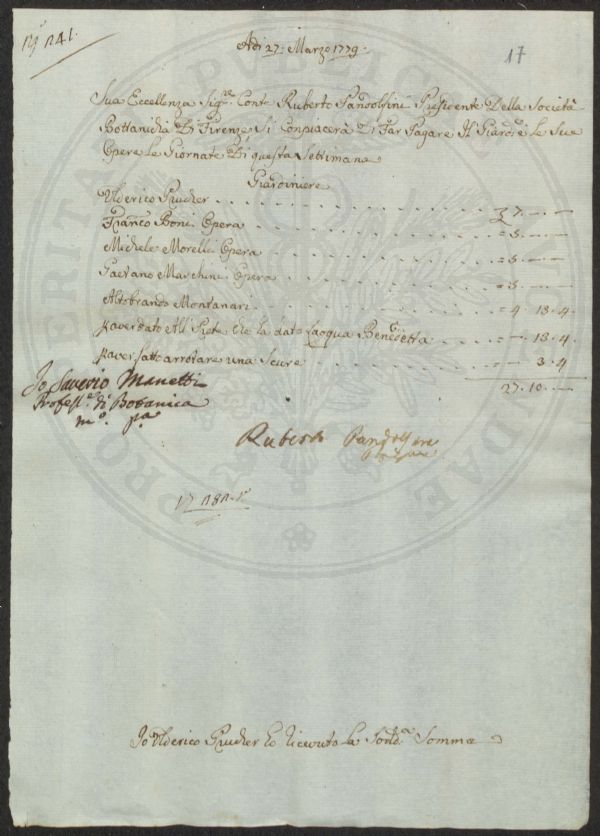 Adi 27: Marzo 1779.
17
Sua Eccellenza Sig.re Conte Ruberto Pandolfini Presidente Della Società
Bottanicha Di Firenze Si Conpiacerà Di Far Pagare Al Giard.re Le Sue
Opere Le Giornate Di questa Settimana
Giardiniere
Ulderico Prucher 7. — —
Franc.co Boni Opera = 5. — —
Michele Morelli Opera = 5. — —
Gaetano Marchini Opera = 5. — —
Altobrando Montanari = 4. 13. 4
p aver dato All Prete che la dato Laqua Benedetta = —. 13. 4
p aver fatto arrotare una Scure — 3. 4
27. 10. —
Io Saverio Manetti
Profess.e di Botanica
m.o p.a
Ruberto Pandolfini
PRO PUBLICA
Io Ulderico Prucher ho ricevuto La Sod.a Somma